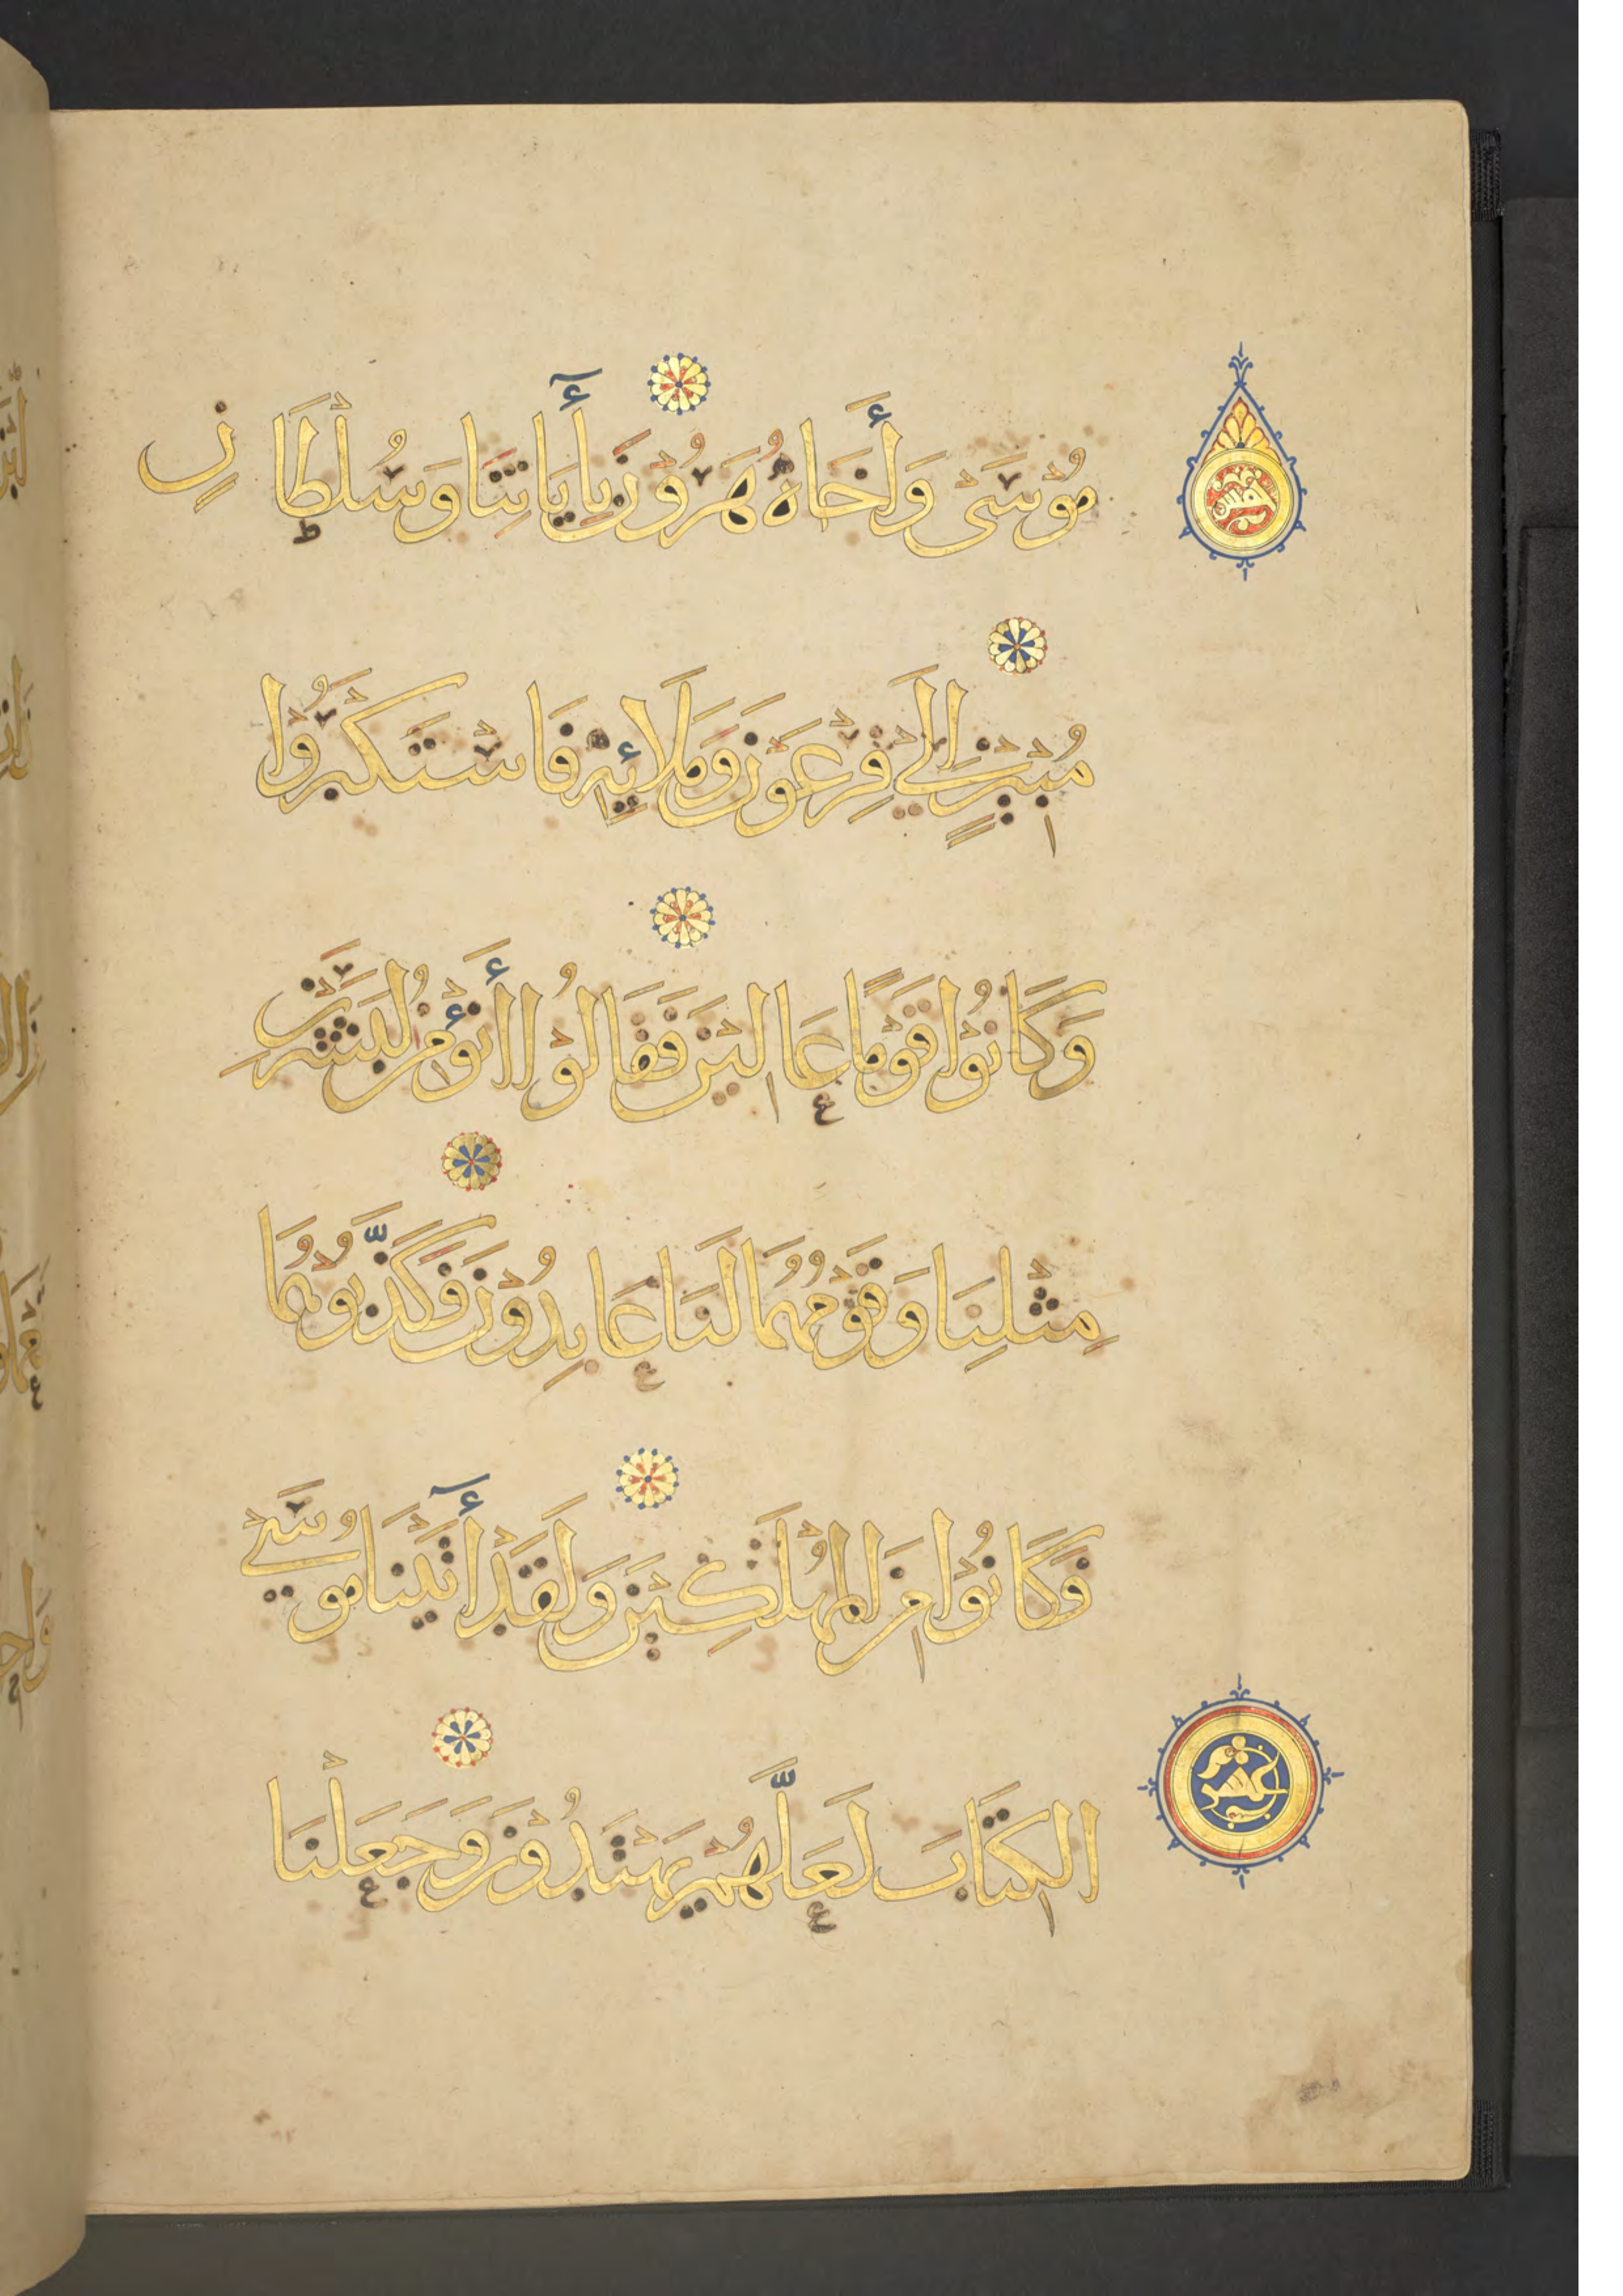 مُوْسَىْ وَأَخَاهُ هَرُوْنَ بِأَيَاتِنَا وَسُلْطَانٍ
مُبِيْنٍ إِلَيْ فِرْعَوْنَ وَمَلَائِهِ فَاسْتَكْبَرُوْا
وَكَانُوْا قَوْمًا عَالِيْنَ فَقَالُوْا أَنُؤْمِنُ لِبَشَرَيْنِ
مِثْلِنَا وَقَوْمُهُمَا لَنَا عَابِدُوْنَ فَكَذَّبُوْهُمَا
فَكَانُوْا مِنَ الْمُهْلَكِيْنَ وَلَقَدْ أٰتَيْنَا مُوْسَيْ
الْكِتَابَ لَعَلَّهُمْ يَهْتَدُوْنَ وَجَعَلْنَا